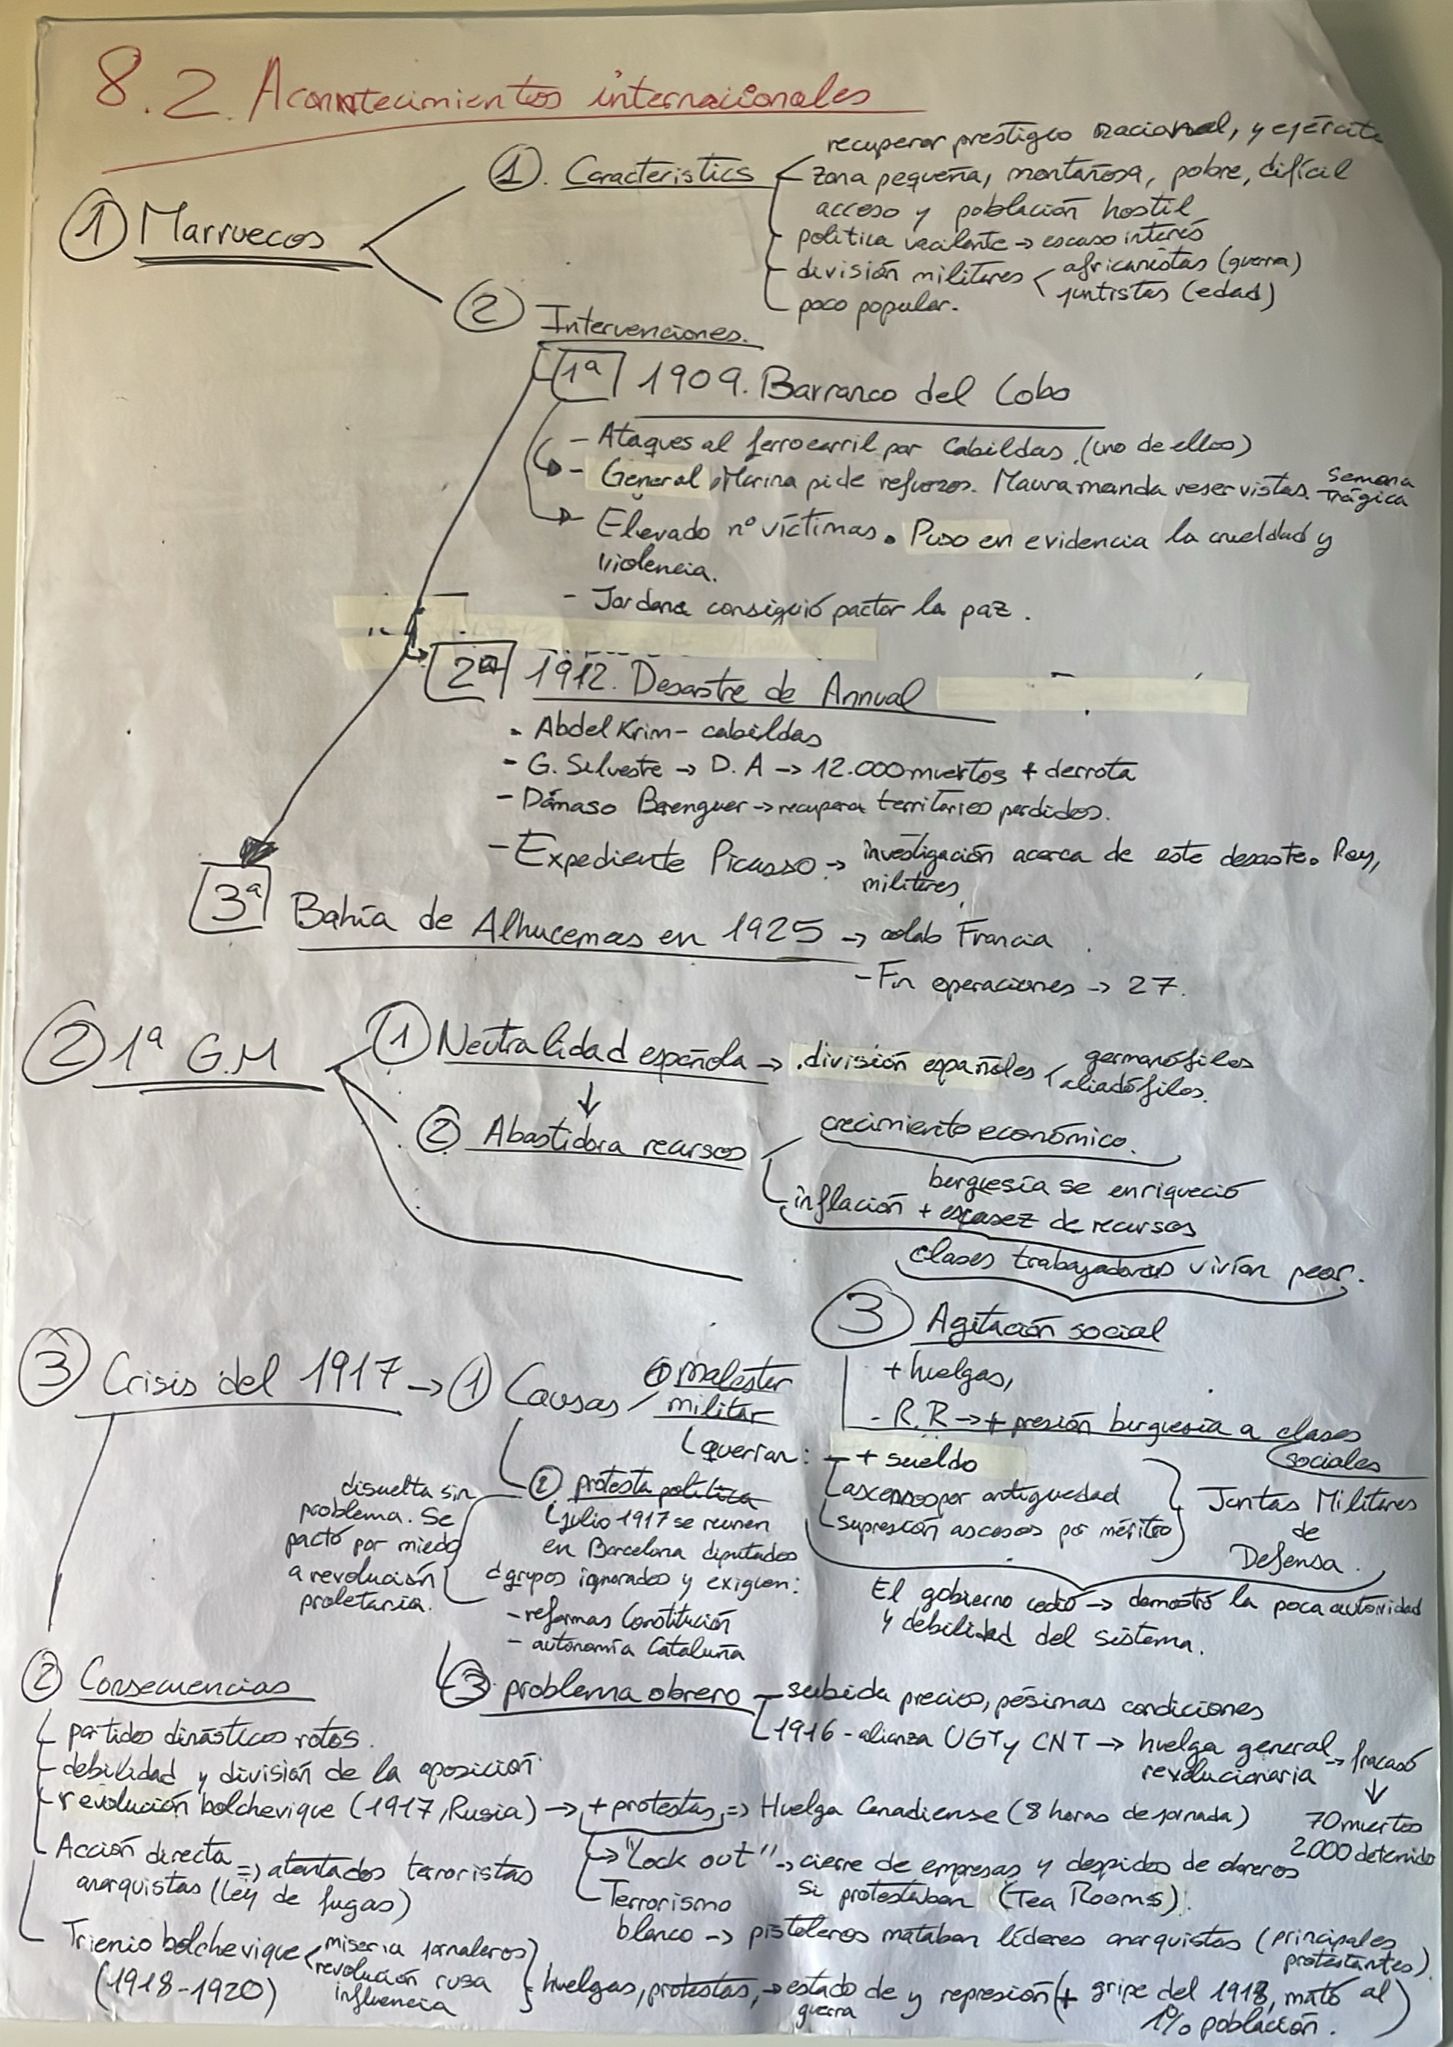 8.2. Acontecimientos internacionales
① Marruecos
①. Caracteristics
recuperar prestigio nacional, y ejército
zona pequeña, montañosa, pobre, difícil
acceso y población hostil
politica vacilante → escaso interés
división militares < africanistas (guerra)
juntistas (edad)
poco popular.
② Intervenciones.
1ª 1909. Barranco del Lobo
- Ataques al ferrocarril por Cabildas. (uno de ellos)
- General Marina pide refuerzos. Maura manda reservistas. Semana
trágica
Elevado nº víctimas. Puso en evidencia la crueldad y
violencia.
- Jordana consiguió pactar la paz.
2ª 1912. Desastre de Annual
- Abdel Krim - cabildas
- G. Silvestre → D.A → 12.000 muertos + derrota
- Dámaso Berenguer → recupera territorios perdidos.
- Expediente Picasso → investigación acerca de este desastre. Rey,
militares,
3ª Bahía de Alhucemas en 1925 → colab Francia
- Fin operaciones → 27.
② 1ª G.M
① Neutralidad española → división españoles < germanófilos
aliadófilos.
↓
② Abastidora recursos
crecimiento económico.
burguesía se enriqueció
inflación + escasez de recursos
clases trabajadoras vivían peor.
③ Agitación social
+ huelgas,
- R.R → + presión burguesía a clases
sociales
③ Crisis del 1917 → ① Causas
① malestar
militar
querían: - + sueldo
ascensos por antiguedad
supresión ascesos por mérito
Juntas Militares
de
Defensa.
El gobierno cedió → demostró la poca autoridad
y debilidad del sistema.
② protesta política
julio 1917 se reunen
en Barcelona diputados
d grupos ignorados y exigien:
- reformas Constitución
- autonomía Cataluña
disuelta sin
problema. Se
pactó por miedo
a revolución
proletaria.
③ problema obrero - subida precios, pésimas condiciones
1916 - alianza UGT y CNT → huelga general
revolucionaria → fracasó
↓
70 muertos
2.000 detenido
② Consecuencias
partidos dinásticos rotos.
debilidad y división de la oposición
revolución bolchevique (1917, Rusia) → + protestas, => Huelga Canadiense (8 horas de jornada)
→ "Lock out" → cierre de empresas y despidos de obreros
si protestaban (Tea Rooms).
Terrorismo
blanco → pistoleros mataban líderes anarquistas (principales
protestantes)
Acción directa
anarquistas (Ley de fugas) => atentados terroristas
Trienio bolchevique
(1918-1920)
miseria jornaleros
revolución rusa
influencia
huelgas, protestas, → estado de y represión (+ gripe del 1918, mató al
guerra
1% población.)